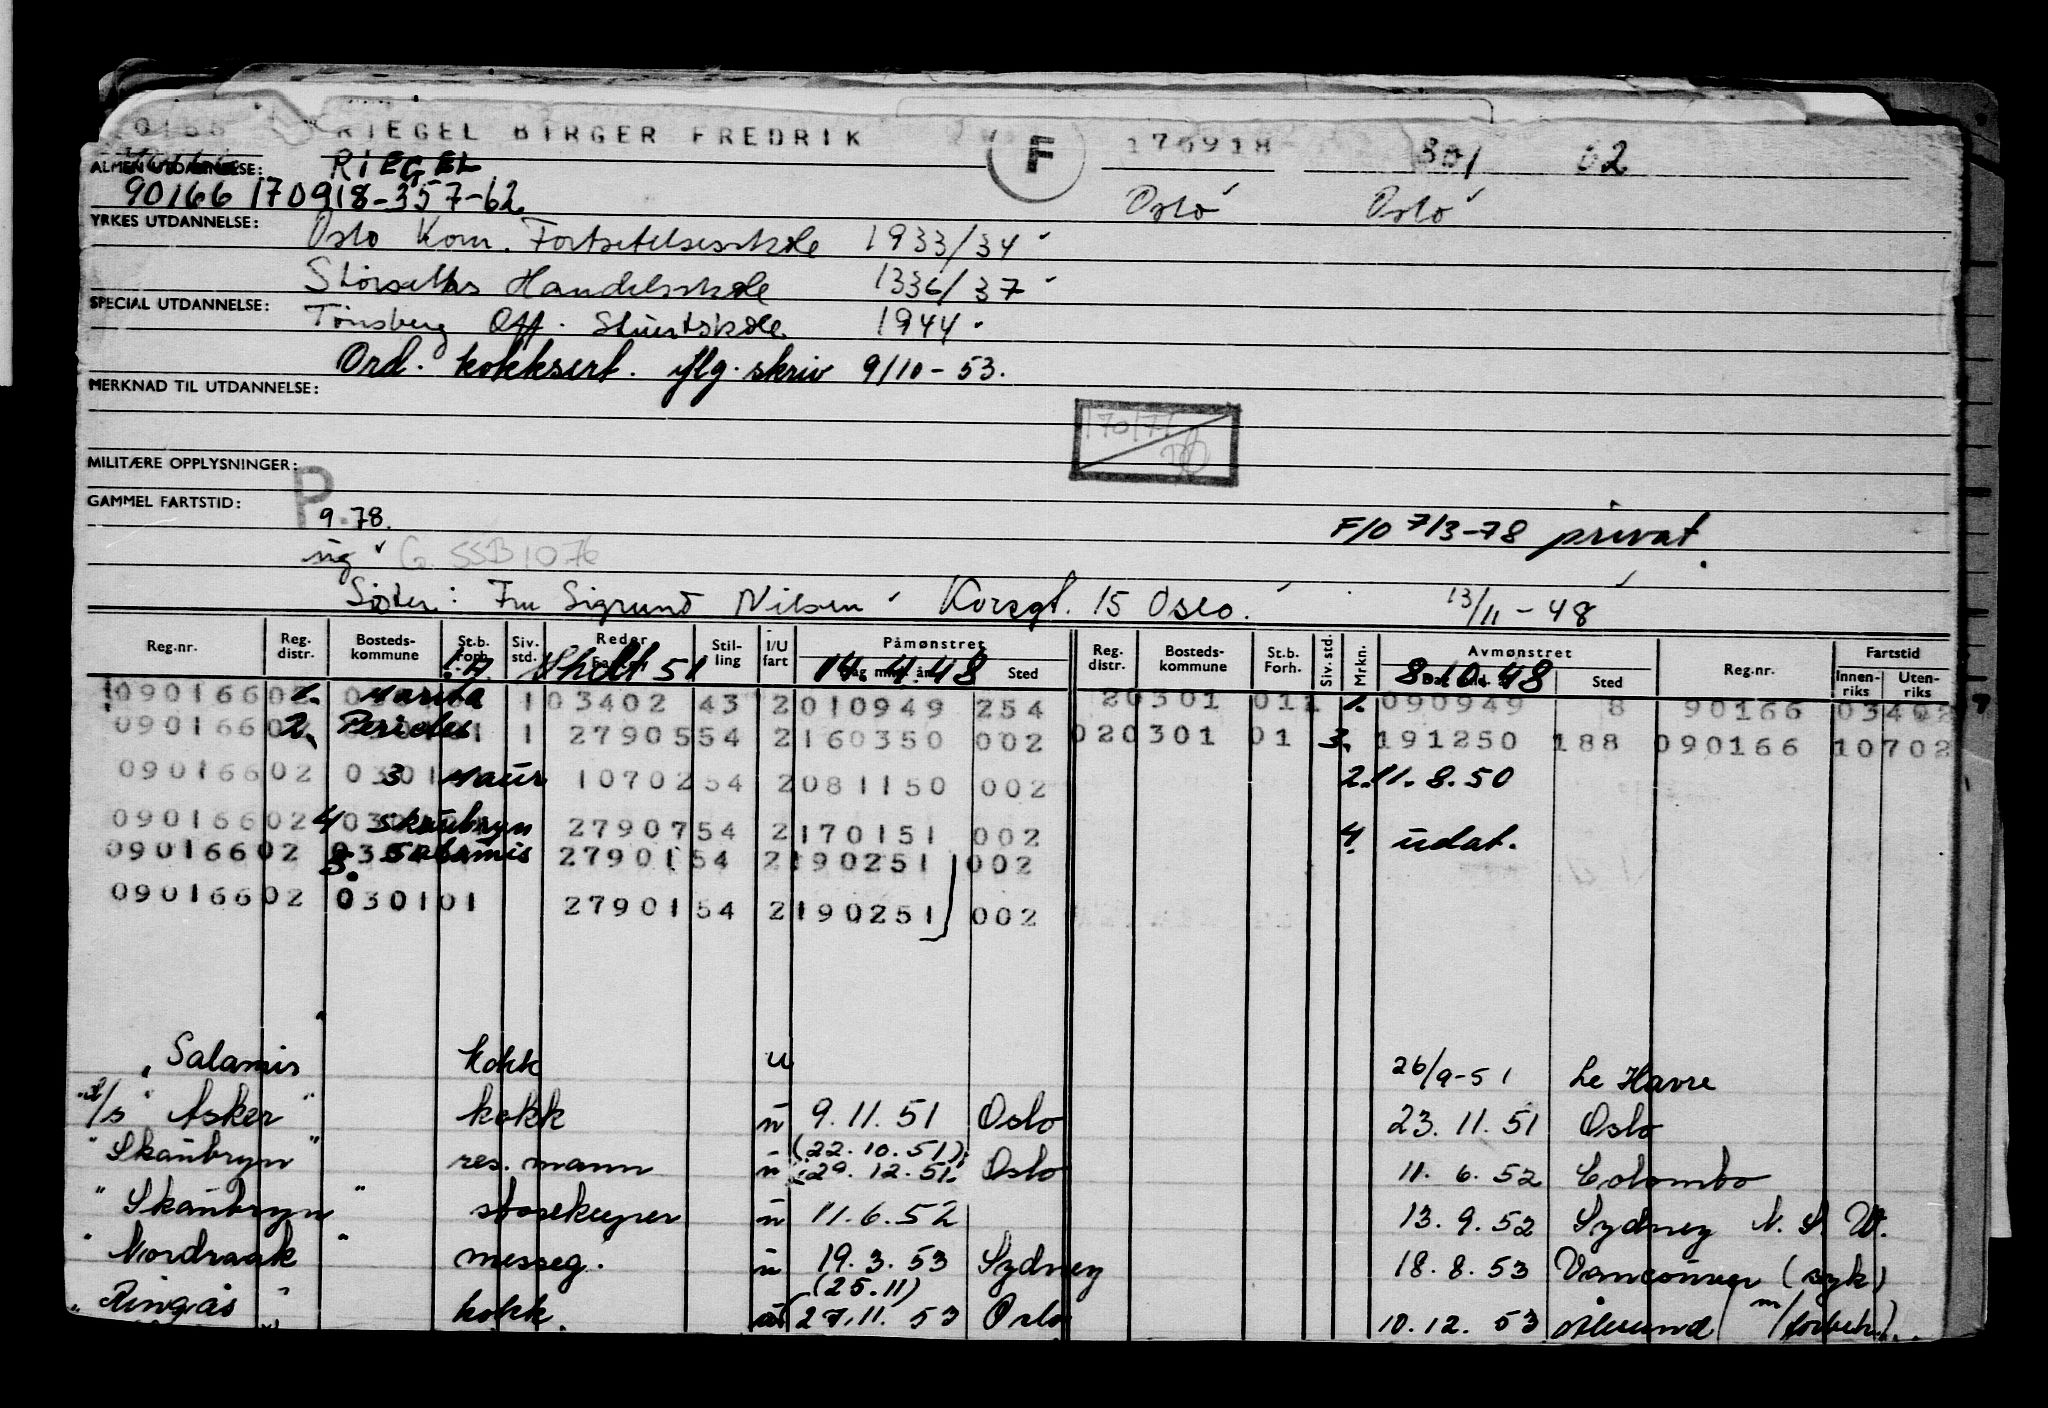 RIEGEL BIRGER FREDRIK F 170918 301 02
ALMEN UTDANNELSE: RIEGEL
90166 170918-357-62 Oslo Oslo
YRKES UTDANNELSE: Oslo Kom. Fortsettelsesskole 1933/34
Storseths Handelsskole 1936/37
SPECIAL UTDANNELSE: Tönsberg Off. Stuertskole 1944.
Ord. kokksert. iflg. skriv 9/10-53.
MERKNAD TIL UTDANNELSE:
MILITÆRE OPPLYSNINGER:
GAMMEL FARTSTID: P
9.78. F/O 7/3-78 privat.
ug G. SSB1076
Söster: Fru Sigrund Nilsen Korsgt. 15 Oslo. 13/11-48
Reg.nr. Reg. distr. Bosteds-kommune St.b. Forh. Siv-std. Reder Stil-ling I/U fart Påmønstret Sted Reg. distr. Bosteds-kommune St.b. Forh. Siv. std. Mrkn. Avmønstret Sted Reg.nr. Fartstid Innen-riks Uten-riks
51 14.4.48 8.10.48
09016602 1. Marita 1 03402 43 2 010949 254 20301 011 1. 090949 8 90166 03402
09016602 2. Pericles 1 27905 54 2 160350 002 020301 01 3. 191250 188 090166 10702
09016602 3 Maur 10702 54 2 081150 002 2. 11.8.50
09016602 4 Skaubryn 27907 54 2 170151 002 4. udat.
09016602 5. Salamis 27901 54 2 190251 002
09016602 030101 27901 54 2 190251 002
"Salamis kokk u 26/9-51 Le Havre
"Asker" kokk u 9.11.51 Oslo 23.11.51 Oslo
(22.10.51)
"Skaubryn" res. mann u 29.12.51. Oslo 11.6.52 Colombo
"Skaubryn" storekeeper u 11.6.52 13.9.52 Sydney N.S.W.
"Nordraak" messeg. u 19.3.53 Sydney 18.8.53 Vancouver (syk)
(25.11)
"Ringås" kokk. 27.11.53 Oslo 10.12.53 Ålesund